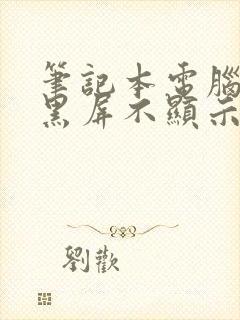 筆記本電腦
黑屏不顯示
劉歡